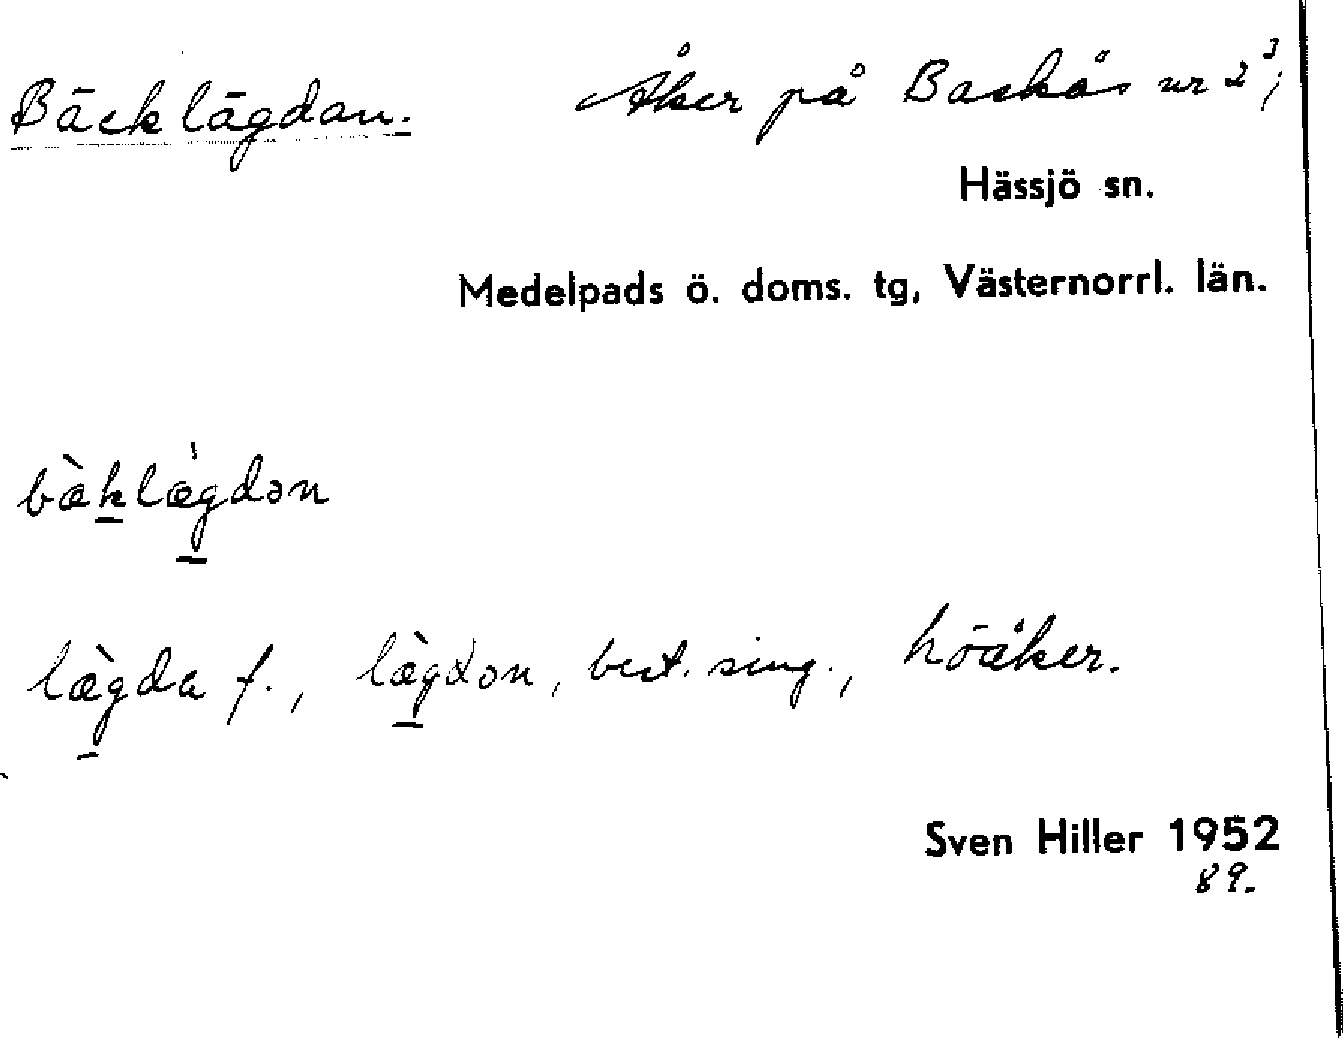 Bäcklägdan. Åker på Backås nr 2³,
Hässjö sn.
Medelpads ö. doms. tg, Västernorrl. län.
bæ̀klæ̀gdən
læ̀gda f., læ̀gdən, best. sing., höåker.
Sven Hiller 1952
89.